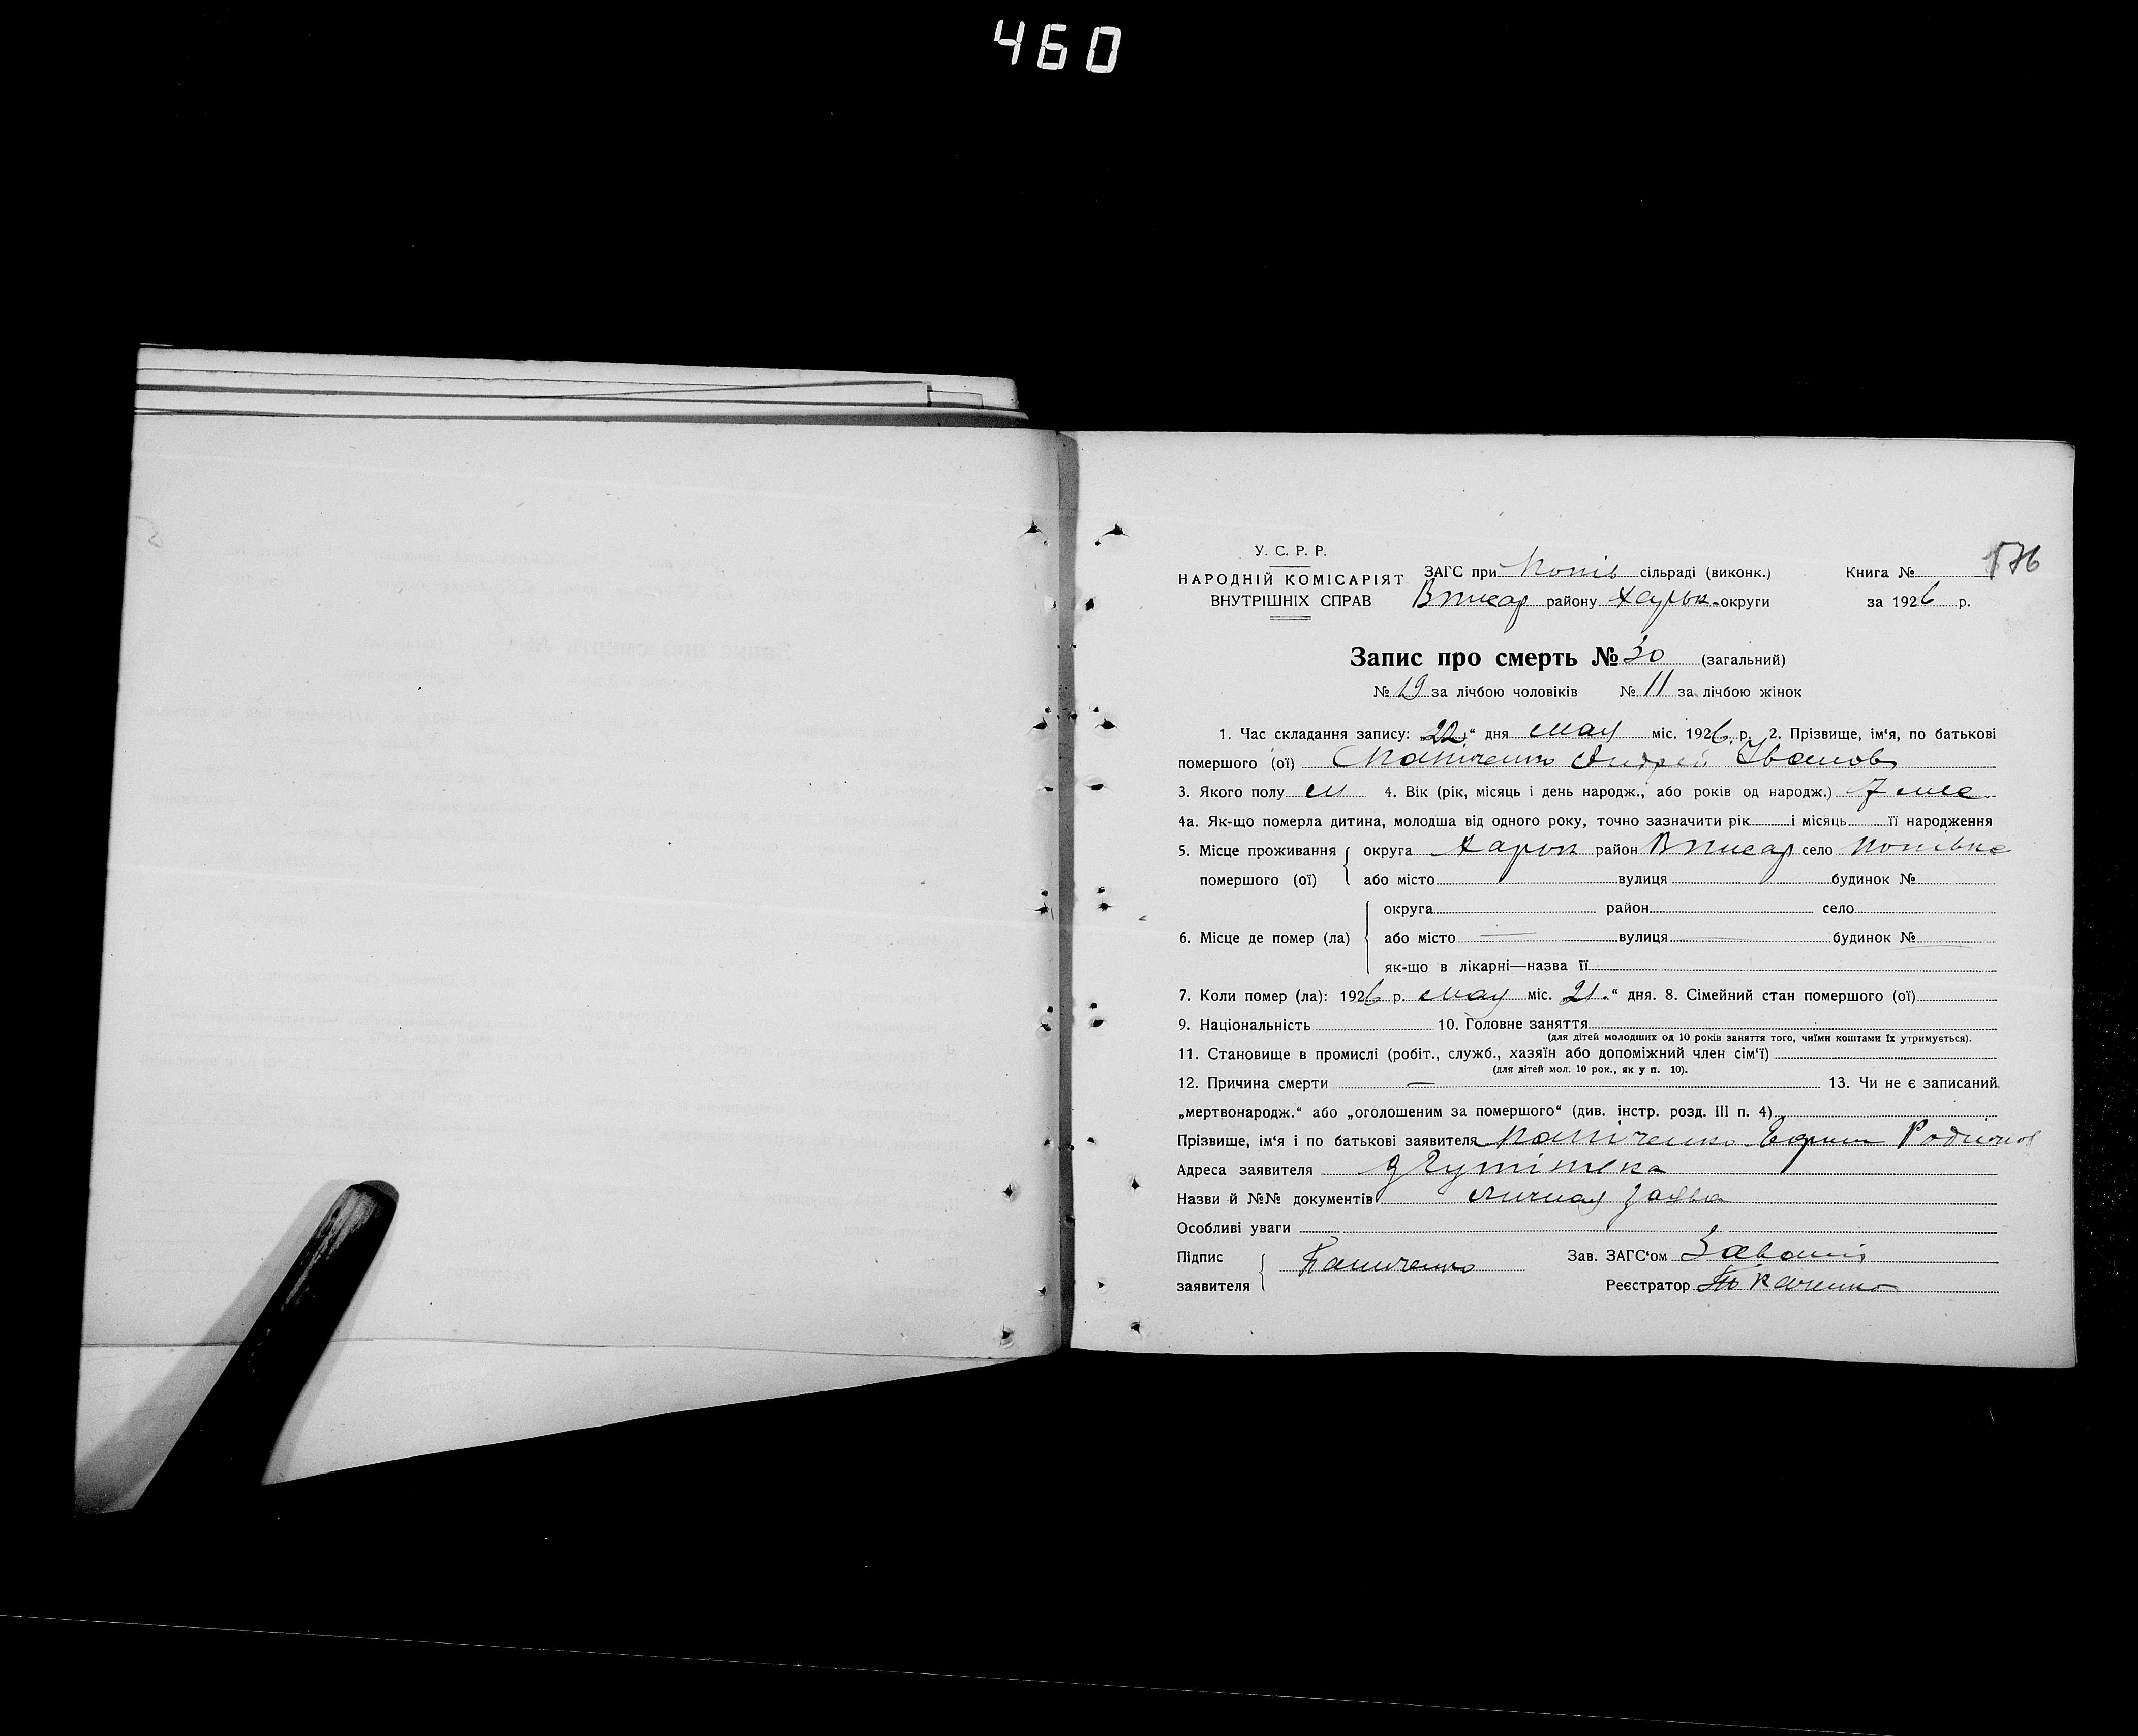 460
У. С. Р. Р.
НАРОДНІЙ КОМІСАРІЯТ
ВНУТРІШНІХ СПРАВ
ЗАГС при Попів сільраді (виконк.)
района Харьк. округи
Книга №
176
за 1926 р.
Запис про смерть № 30 (загальний)
№ 19 за лічбою чоловіків № 11 за лічбою жінок
1. Час складання запису: „22“ дня мая міс. 1926 р. 2. Прізвище, ім‘я, по батькові
помершого (ої) Андрей Иванов
3. Якого полу м 4. Вік (рік, місяць і день народж., або років од народж.) 7 мес
4а. Як-що померла дитина, молодша від одного року, точно зазначити рік і місяць її народження
5. Місце проживання помершого (ої) округа Харьк район село Попівка
або місто вулиця будинок №
6. Місце де помер (ла) округа район село
або місто — вулиця будинок №
як-що в лікарні—назва її
7. Коли помер (ла): 1926 р. мая міс. 21 “ дня. 8. Сімейний стан помершого (ої)
9. Національність 10. Головне заняття
(для дітей молодших од 10 років заняття того, чиїми коштами їх утримується).
11. Становище в промислі (робіт., служб., хазяїн або допоміжний член сім‘ї)
(для дітей мол. 10 рок., як у п. 10).
12. Причина смерти — 13. Чи не є записаний
„мертвонародж.“ або „оголошеним за помершого“ (див. інстр. розд. III п. 4)
Прізвище, ім‘я і по батькові заявителя
Адреса заявителя
Назви й №№ документів личная заява
Особливі уваги
Підпис заявителя
Зав. ЗАГС‘ом
Реєстратор Ткаченко